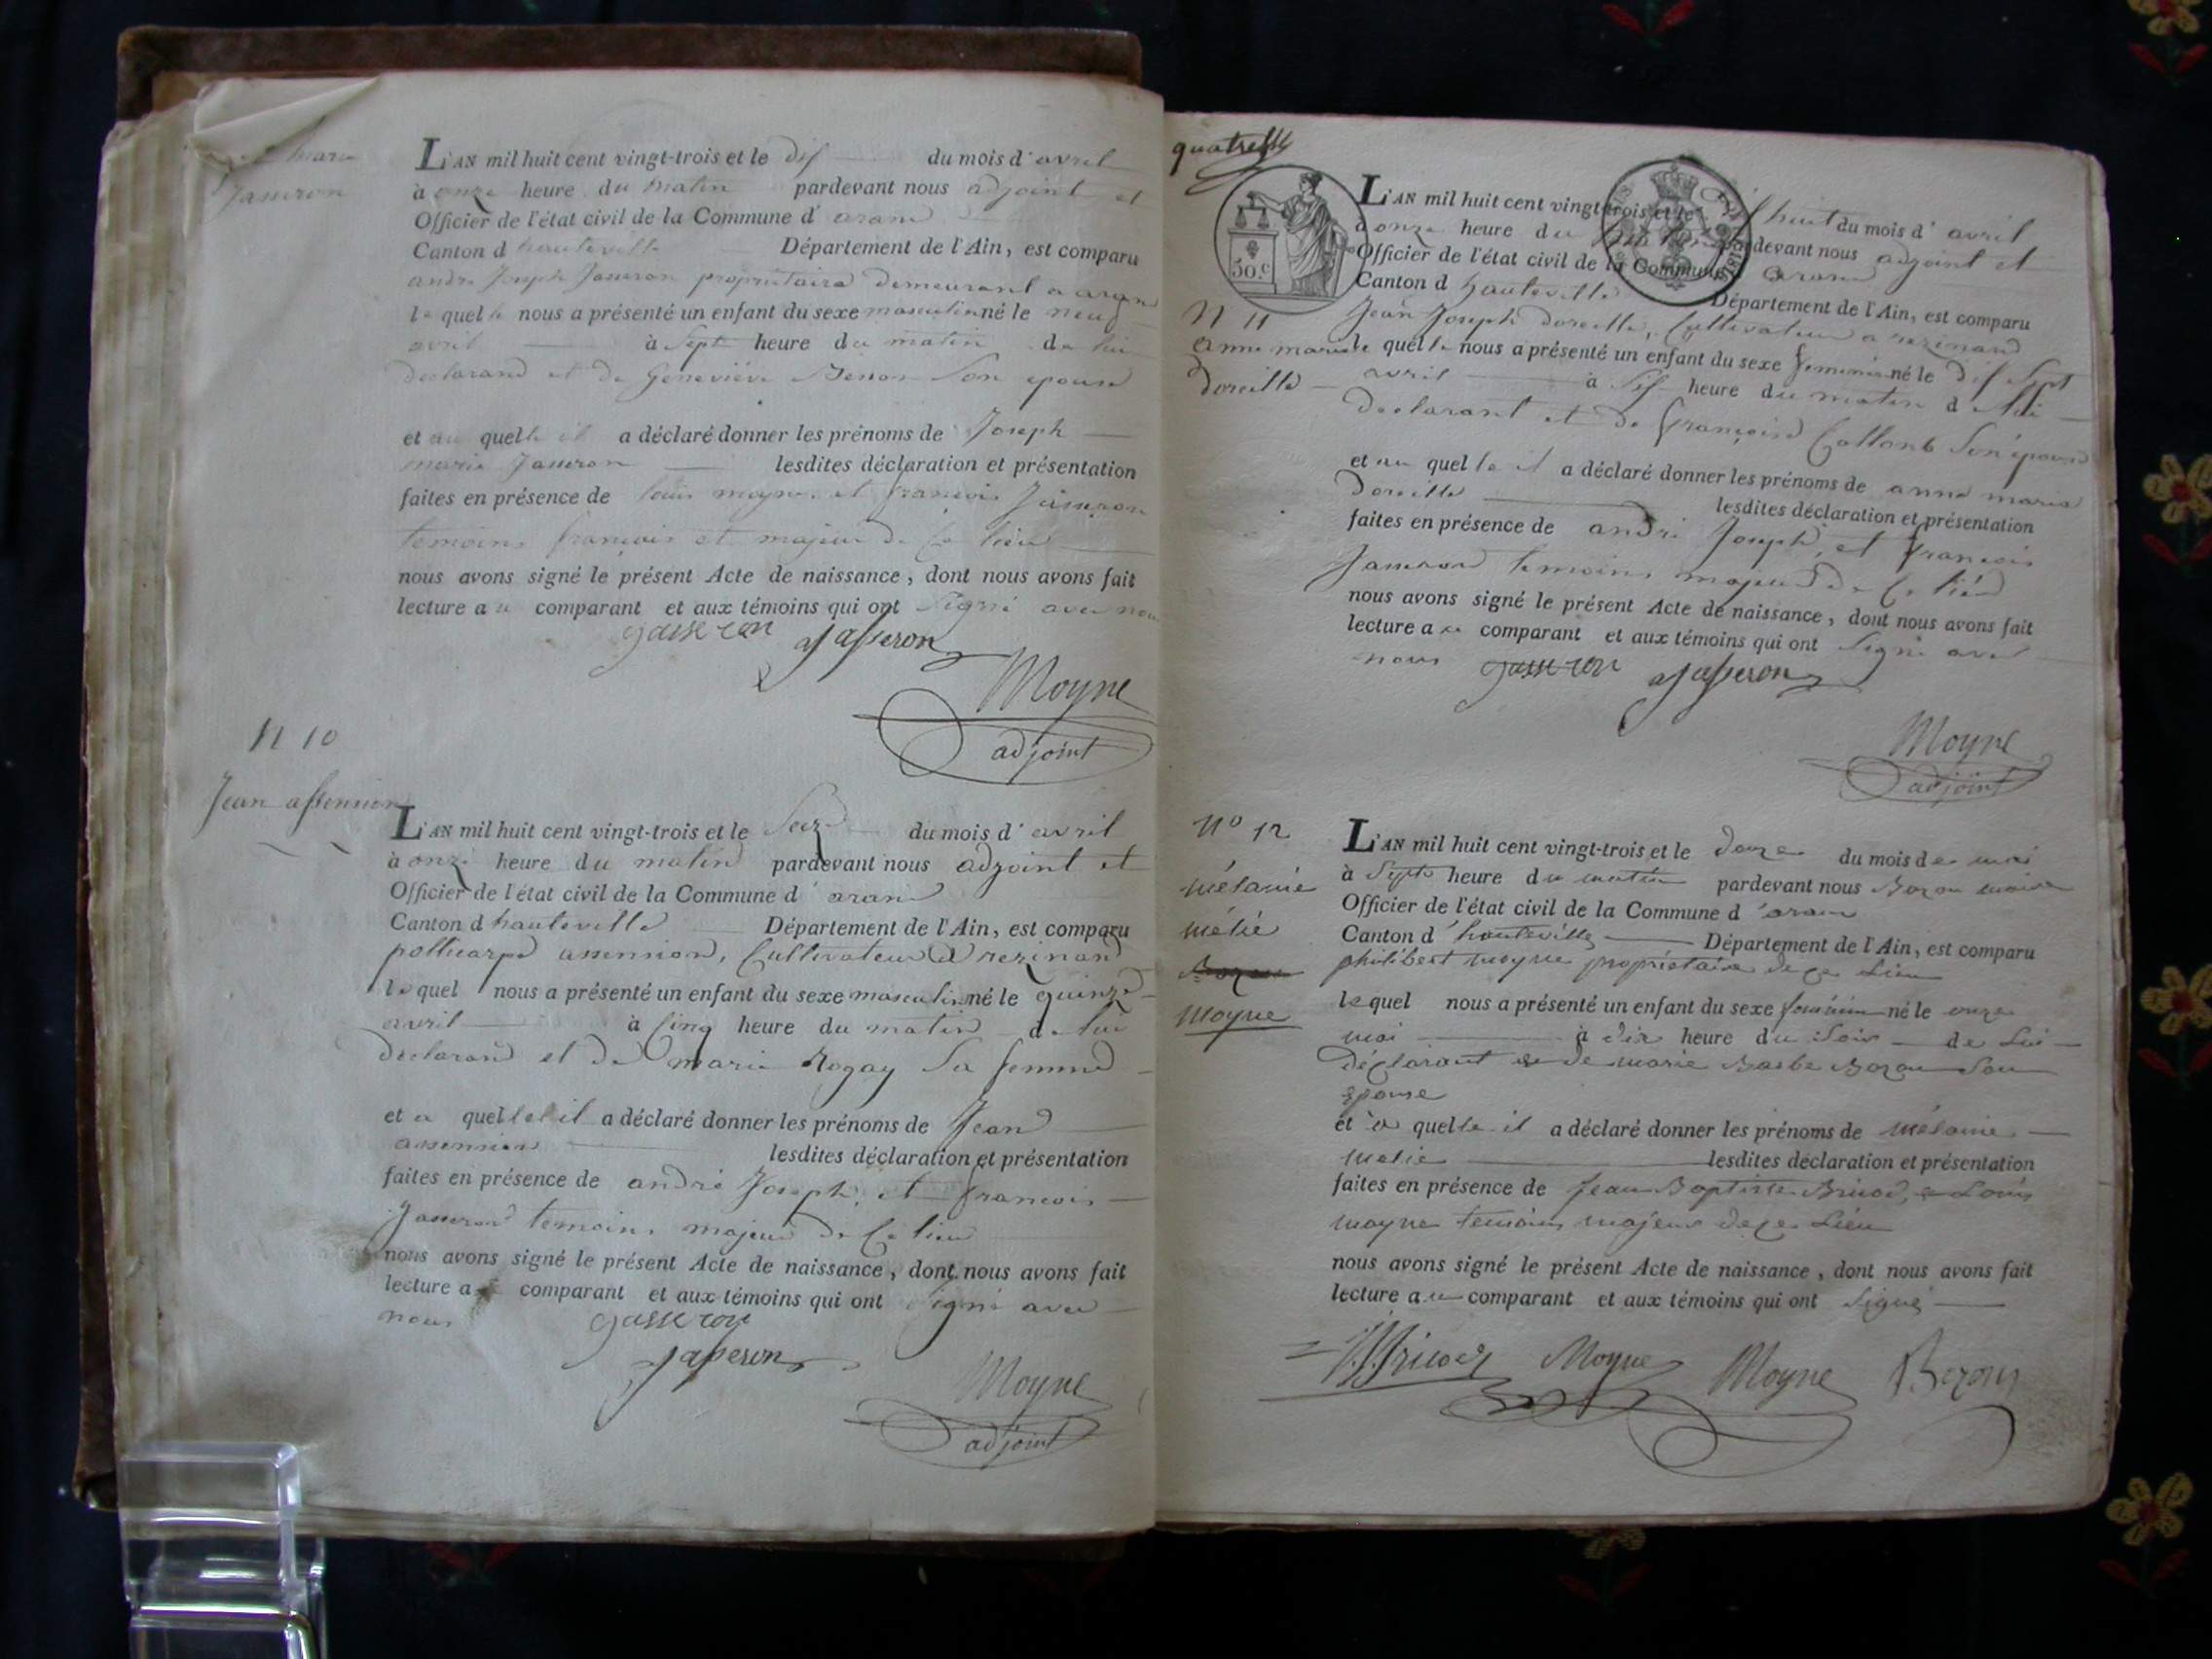 marie
Jasseron
L'AN mil huit cent vingt-trois et le dix du mois d'avril
à onze heure du matin pardevant nous adjoint et
Officier de l'état civil de la Commune d'aranc
Canton d hauteville Département de l'Ain, est comparu
andré Joseph Jasseron propriétaire demeurant a aranc
lequel nous a présenté un enfant du sexe masculin né le neuf
avril à Sept heure du matin de lui
declarand et de Geneviéve Son epouse
et au quel il a déclaré donner les prénoms de Joseph
marie Jasseron lesdites déclaration et présentation
faites en présence de louis moyne et francois Jasseron
temoins francois et majeur de Ce lieu
nous avons signé le présent Acte de naissance, dont nous avons fait
lecture au comparant et aux témoins qui ont Signé avec nous
Jasseron Jasseron
Moyne
adjoint
N 10
Jean assennion
L'AN mil huit cent vingt-trois et le Seize du mois d'avril
à onze heure du matin pardevant nous adjoint et
Officier de l'état civil de la Commune d'aranc
Canton d hauteville Département de l'Ain, est comparu
pollicarpe assennion, Cultivateur a rezinand
lequel nous a présenté un enfant du sexe masculin né le quinze
avril à Cinq heure du matin de lui
declarand et de marie Rogay Sa femme
et a quel il a déclaré donner les prénoms de Jean
assennion lesdites déclaration et présentation
faites en présence de andré Joseph, et francois
Jasseron temoins majeur de Ce lieu
nous avons signé le présent Acte de naissance, dont nous avons fait
lecture a comparant et aux témoins qui ont Signé avec
nous Jasseron
Jasseron
Moyne
adjoint
50.c
L'AN mil huit cent vingt-trois et le dix huit du mois d'avril
à onze heure du matin pardevant nous adjoint et
Officier de l'état civil de la Commune d'aranc
Canton d hauteville Département de l'Ain, est comparu
N 11
Jean Joseph doreille, Cultivateur a rezinand
anne marie
lequel nous a présenté un enfant du sexe feminin né le dix Sept
doreille
avril à Six heure du matin de lui
declarant et de françoise Collomb Son épouse
et au quel le il a déclaré donner les prénoms de anne marie
doreille lesdites déclaration et présentation
faites en présence de andré Joseph, et francois
Jasseron temoins majeurs de Ce lieu
nous avons signé le présent Acte de naissance, dont nous avons fait
lecture au comparant et aux témoins qui ont Signé avec
nous Jasseron Jasseron
Moyne
adjoint
N° 12
mélanie
mélie
Bozon
Moyne
L'AN mil huit cent vingt-trois et le douze du mois de mai
à Septe heure du matin pardevant nous Bozon maire
Officier de l'état civil de la Commune d'aranc
Canton d'hauteville Département de l'Ain, est comparu
philibert moyne propriétaire de ce Lieu
lequel nous a présenté un enfant du sexe féminin né le onze
mai à dix heure du Soir de Lui
déclarant et de marie Barbe Bozon Son
épouse
et à quelle il a déclaré donner les prénoms de mélanie
mélie lesdites déclaration et présentation
faites en présence de Jean Baptiste Brucod, et Louis
moyne temoins majeur de ce Lieu
nous avons signé le présent Acte de naissance, dont nous avons fait
lecture au comparant et aux témoins qui ont Signé
Moyne Moyne Bozon